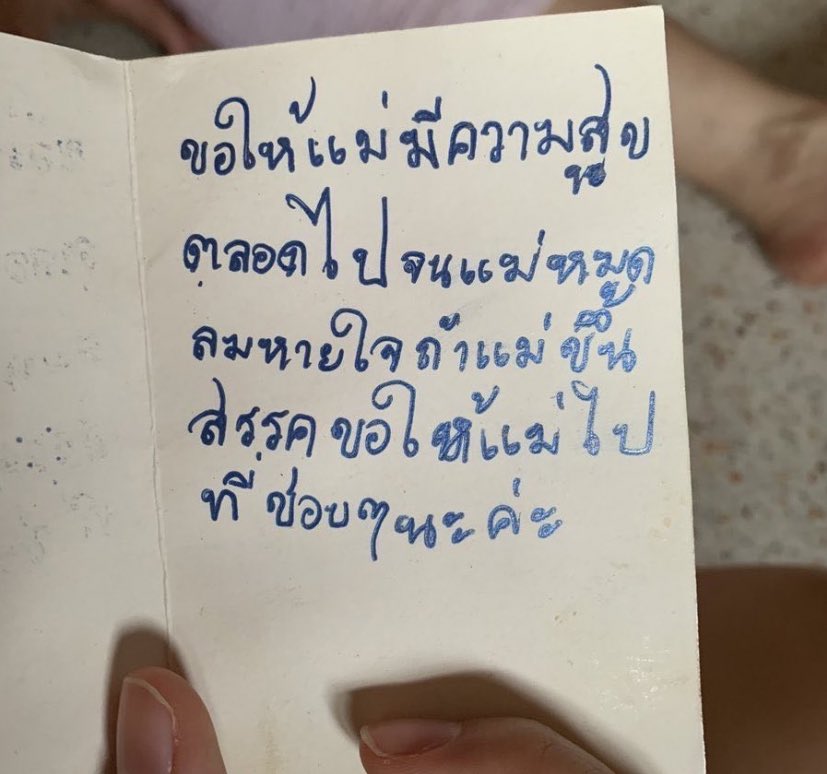 ขอให้แม่มีความสุข
ตลอดไปจนแม่หมด
ลมหายใจถ้าแม่ขึ้น
สรรคขอให้แม่ไป
ที่ช่อบๆนะค่ะ